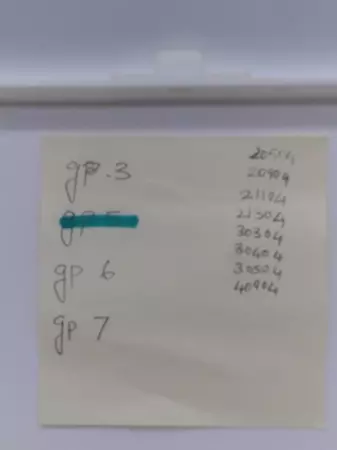 gp.3
gp 5
gp 6
gp 7
20904
21104
21504
30304
30404
30504
40904